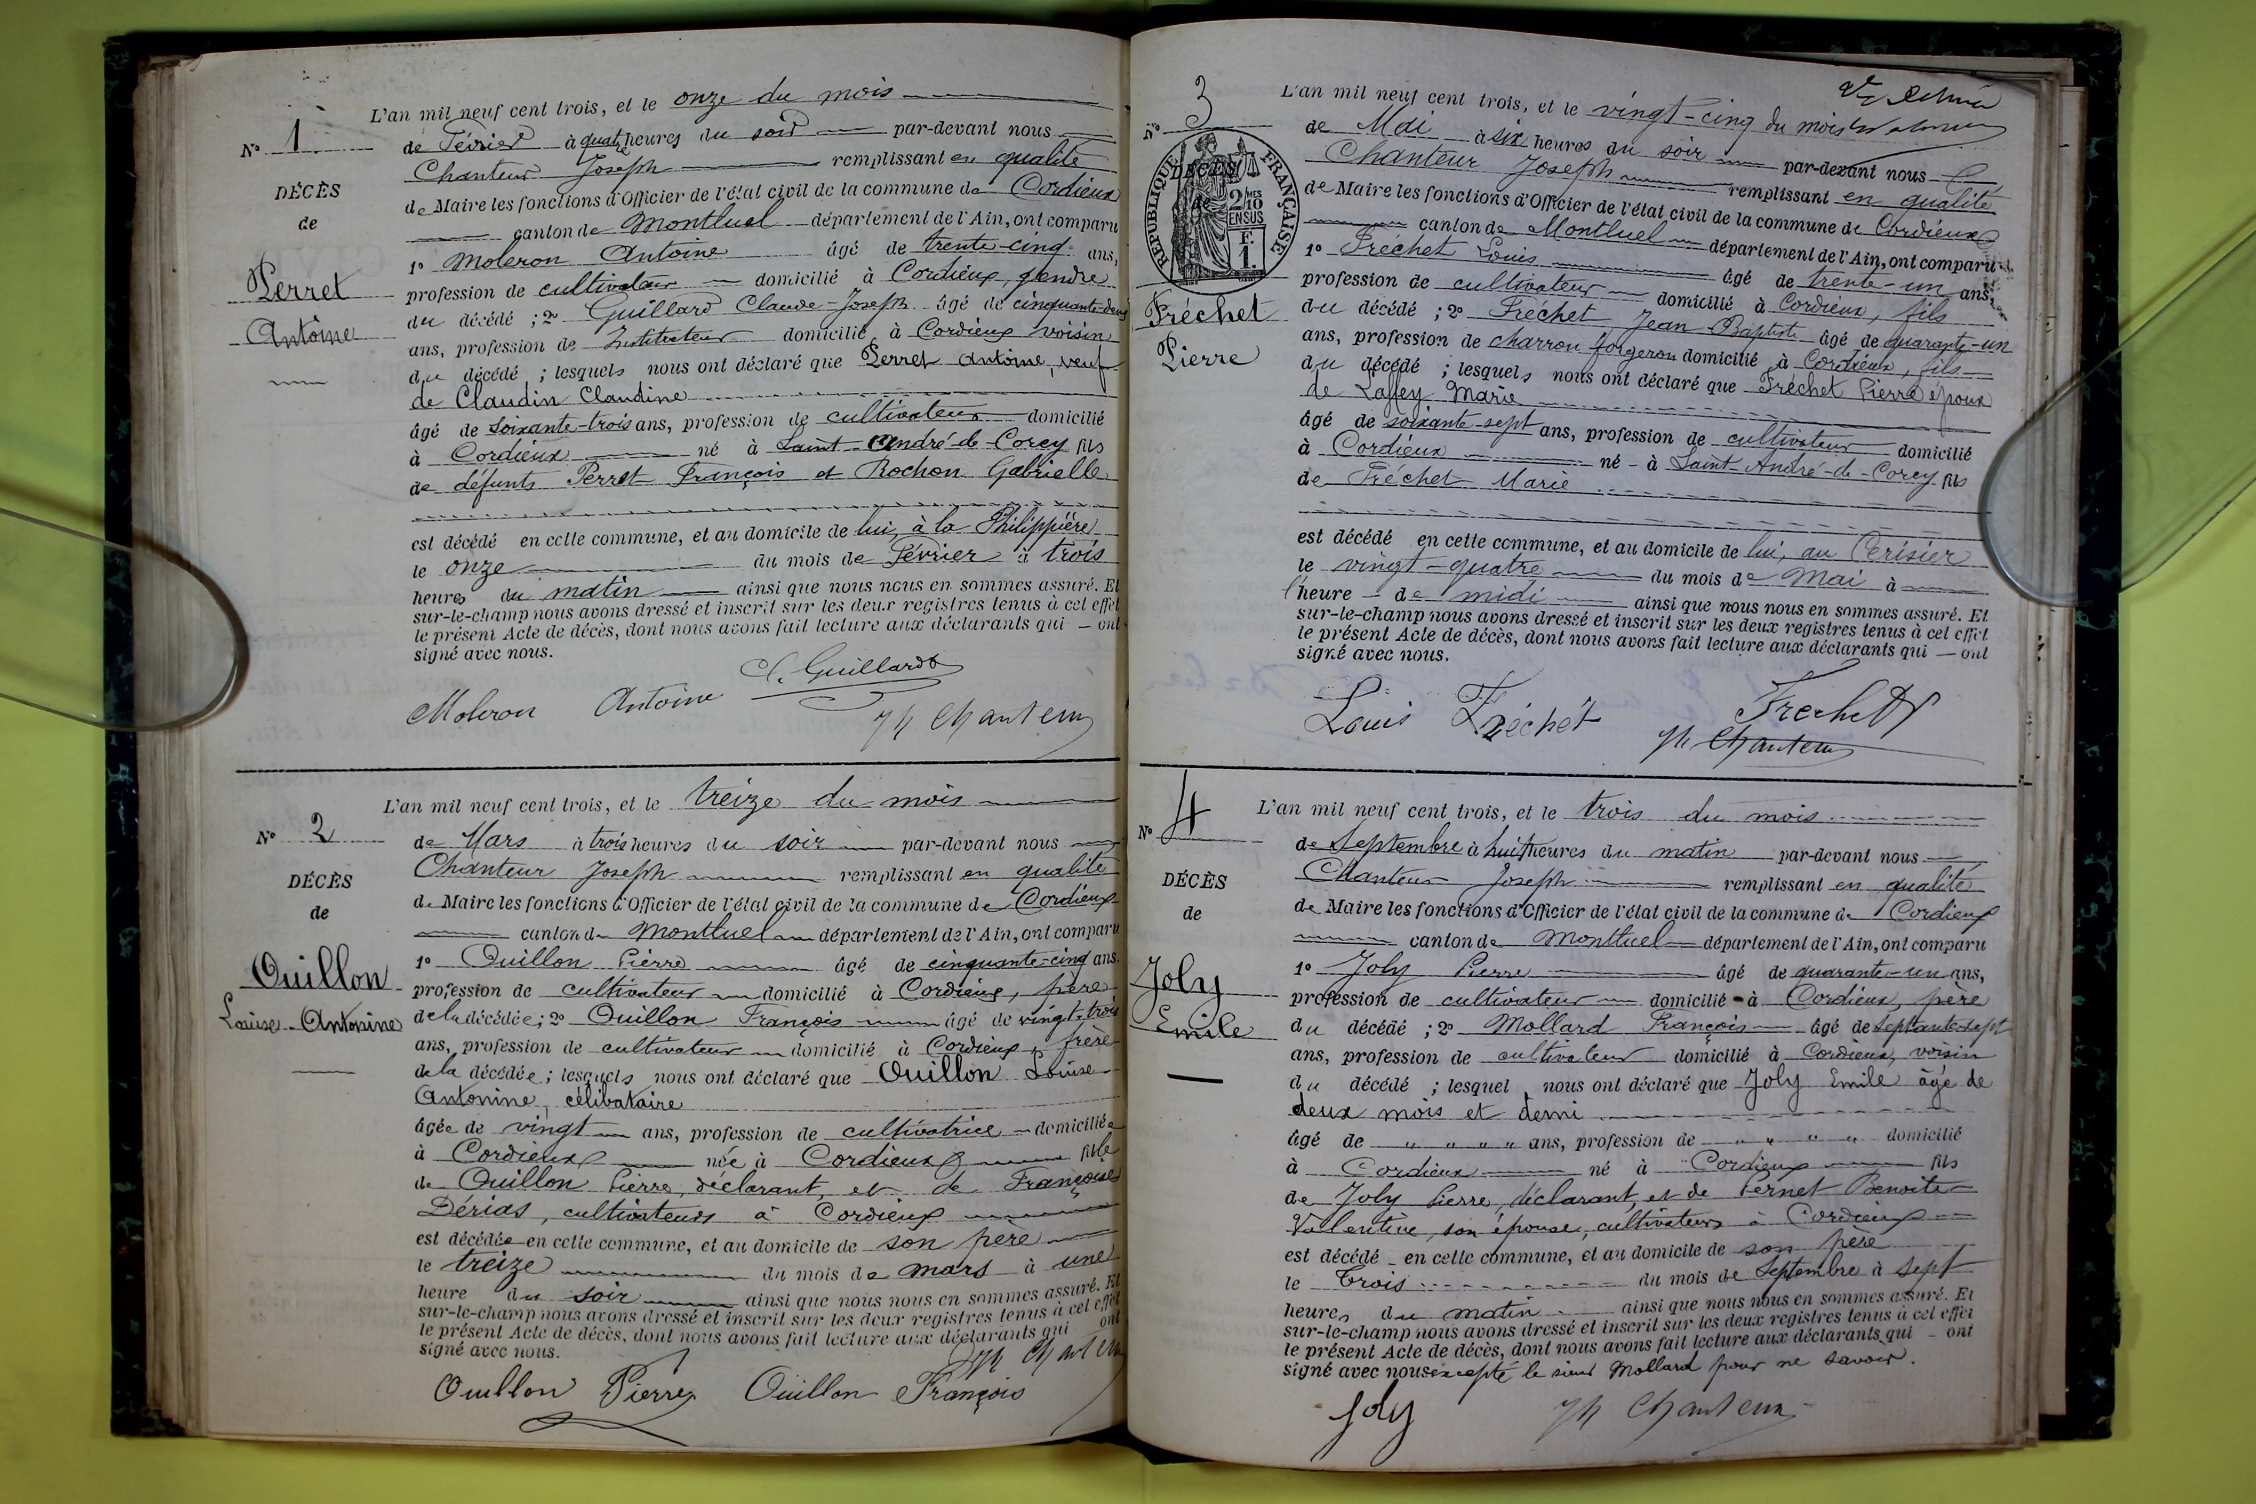 L'an mil neuf cent trois, et le onze du mois
N° 1
de Février à quatre heures du soir par-devant nous
Chanteur Joseph remplissant en qualité
DÉCÈS
de Maire les fonctions d'Officier de l'état civil de la commune de Cordieux
de
canton de Montluel département de l'Ain, ont comparu
1° Moleron Antoine âgé de trente-cinq ans,
Perret
profession de cultivateur domicilié à Cordieux, gendre
du décédé ; 2° Guillard Claude-Joseph âgé de cinquante-deux
Antoine
ans, profession de Instituteur domicilié à Cordieux voisin
du décédé ; lesquels nous ont déclaré que Perret Antoine, veuf
de Claudin Claudine
âgé de soixante-trois ans, profession de cultivateur domicilié
à Cordieux né à Saint-André-de-Corcy fils
de défunts Perret François et Rochon Gabrielle
est décédé en cette commune, et au domicile de lui, à la Philippière
le onze du mois de Février à trois
heures du matin ainsi que nous nous en sommes assuré. Et
sur-le-champ nous avons dressé et inscrit sur les deux registres tenus à cet effet
le présent Acte de décès, dont nous avons fait lecture aux déclarants qui ont
signé avec nous.
C. Guillard
Moleron Antoine
Jh Chanteur
L'an mil neuf cent trois, et le treize du mois
N° 2
de Mars à trois heures du soir par-devant nous
Chanteur Joseph remplissant en qualité
DÉCÈS
de Maire les fonctions d'Officier de l'état civil de la commune de Cordieux
de
canton de Montluel département de l'Ain, ont comparu
1° Ouillon Pierre âgé de cinquante-cinq ans.
Ouillon
profession de cultivateur domicilié à Cordieux, père
Louise-Antonine
de la décédée ; 2° Ouillon François âgé de vingt-trois
ans, profession de cultivateur domicilié à Cordieux, frère
de la décédée ; lesquels nous ont déclaré que Ouillon Louise
Antonine, célibataire
âgée de vingt ans, profession de cultivatrice domiciliée
à Cordieux née à Cordieux fille
de Ouillon Pierre, déclarant, et de Françoise
Dérias, cultivateurs à Cordieux
est décédée en cette commune, et au domicile de son père
le treize du mois de mars à une
heure du soir ainsi que nous nous en sommes assuré. Et
sur-le-champ nous avons dressé et inscrit sur les deux registres tenus à cet effet
le présent Acte de décès, dont nous avons fait lecture aux déclarants qui ont
signé avec nous.
Jh Chanteur
Ouillon Pierre Ouillon François
L'an mil neuf cent trois, et le vingt-cinq du mois
N° 3
de Mai à six heures du soir par-devant nous
Chanteur Joseph remplissant en qualité
RÉPUBLIQUE FRANÇAISE
DÉCÈS
2/10 EN SUS
de
F. 1.
de Maire les fonctions d'Officier de l'état civil de la commune de Cordieux
canton de Montluel département de l'Ain, ont comparu
1° Fréchet Louis âgé de trente-un ans,
profession de cultivateur domicilié à Cordieux, fils
Fréchet
du décédé ; 2° Fréchet Jean Baptiste âgé de quarante-un
Pierre
ans, profession de charron forgeron domicilié à Cordieux, fils
du décédé ; lesquels nous ont déclaré que Fréchet Pierre époux
de Laffey Marie
âgé de soixante-sept ans, profession de cultivateur domicilié
à Cordieux né à Saint-André-de-Corcy fils
de Fréchet Marie
est décédé en cette commune, et au domicile de lui, au Cerisier
le vingt-quatre du mois de Mai à
l'heure de midi ainsi que nous nous en sommes assuré. Et
sur-le-champ nous avons dressé et inscrit sur les deux registres tenus à cet effet
le présent Acte de décès, dont nous avons fait lecture aux déclarants qui ont
signé avec nous.
Louis Fréchet Frechet
Jh Chanteur
L'an mil neuf cent trois, et le trois du mois
N° 4
de Septembre à huit heures du matin par-devant nous
Chanteur Joseph remplissant en qualité
DÉCÈS
de Maire les fonctions d'Officier de l'état civil de la commune de Cordieux
de
canton de Montluel département de l'Ain, ont comparu
1° Joly Pierre âgé de quarante-un ans,
Joly
profession de cultivateur domicilié à Cordieux, père
Emile
du décédé ; 2° Mollard François âgé de septante-sept
ans, profession de cultivateur domicilié à Cordieux, voisin
du décédé ; lesquel nous ont déclaré que Joly Emile âgé de
deux mois et demi
âgé de " " " " ans, profession de " " " " domicilié
à Cordieux né à Cordieux fils
de Joly Pierre, déclarant, et de Pernet Benoite
Valentine, son épouse, cultivateurs à Cordieux
est décédé en cette commune, et au domicile de son père
le Trois du mois de Septembre à sept
heures du matin ainsi que nous nous en sommes assuré. Et
sur-le-champ nous avons dressé et inscrit sur les deux registres tenus à cet effet
le présent Acte de décès, dont nous avons fait lecture aux déclarants qui ont
signé avec nous excepté le sieur Mollard pour ne savoir.
Joly Jh Chanteur